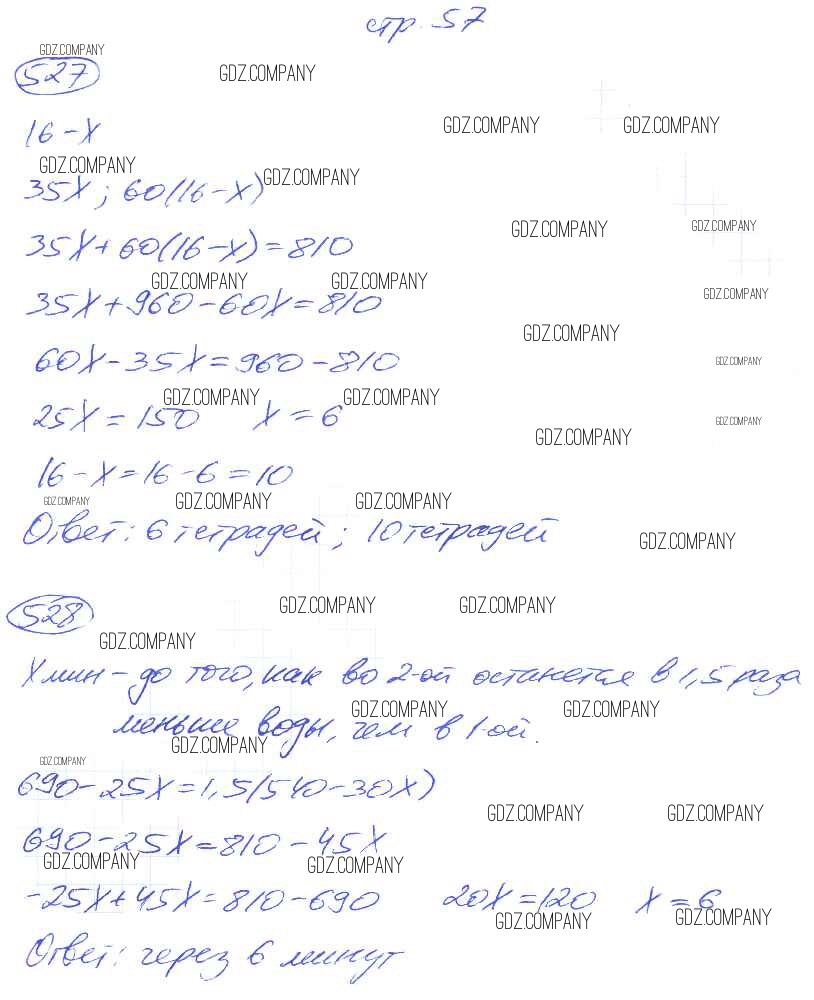 стр. 57
GDZ.COMPANY
527
GDZ.COMPANY
16-x
GDZ.COMPANY GDZ.COMPANY
GDZ.COMPANY GDZ.COMPANY
35x; 60(16-x)
GDZ.COMPANY GDZ.COMPANY
35x+60(16-x)=810
GDZ.COMPANY GDZ.COMPANY
35x+960-60x=810
GDZ.COMPANY
GDZ.COMPANY
60x-35x=960-810
GDZ.COMPANY
GDZ.COMPANY GDZ.COMPANY
25x=150 x=6
GDZ.COMPANY
GDZ.COMPANY
16-x=16-6=10
GDZ.COMPANY GDZ.COMPANY GDZ.COMPANY
Ответ: 6 тетрадей; 10 тетрадей
GDZ.COMPANY
528
GDZ.COMPANY GDZ.COMPANY
GDZ.COMPANY
x мин - до того, как во 2-ой останется в 1,5 раза
GDZ.COMPANY GDZ.COMPANY
меньше воды, чем в 1-ой.
GDZ.COMPANY
GDZ.COMPANY
690-25x=1,5(540-30x)
GDZ.COMPANY GDZ.COMPANY
690-25x=810-45x
GDZ.COMPANY GDZ.COMPANY
-25x+45x=810-690 20x=120 x=6
GDZ.COMPANY GDZ.COMPANY
Ответ: через 6 минут